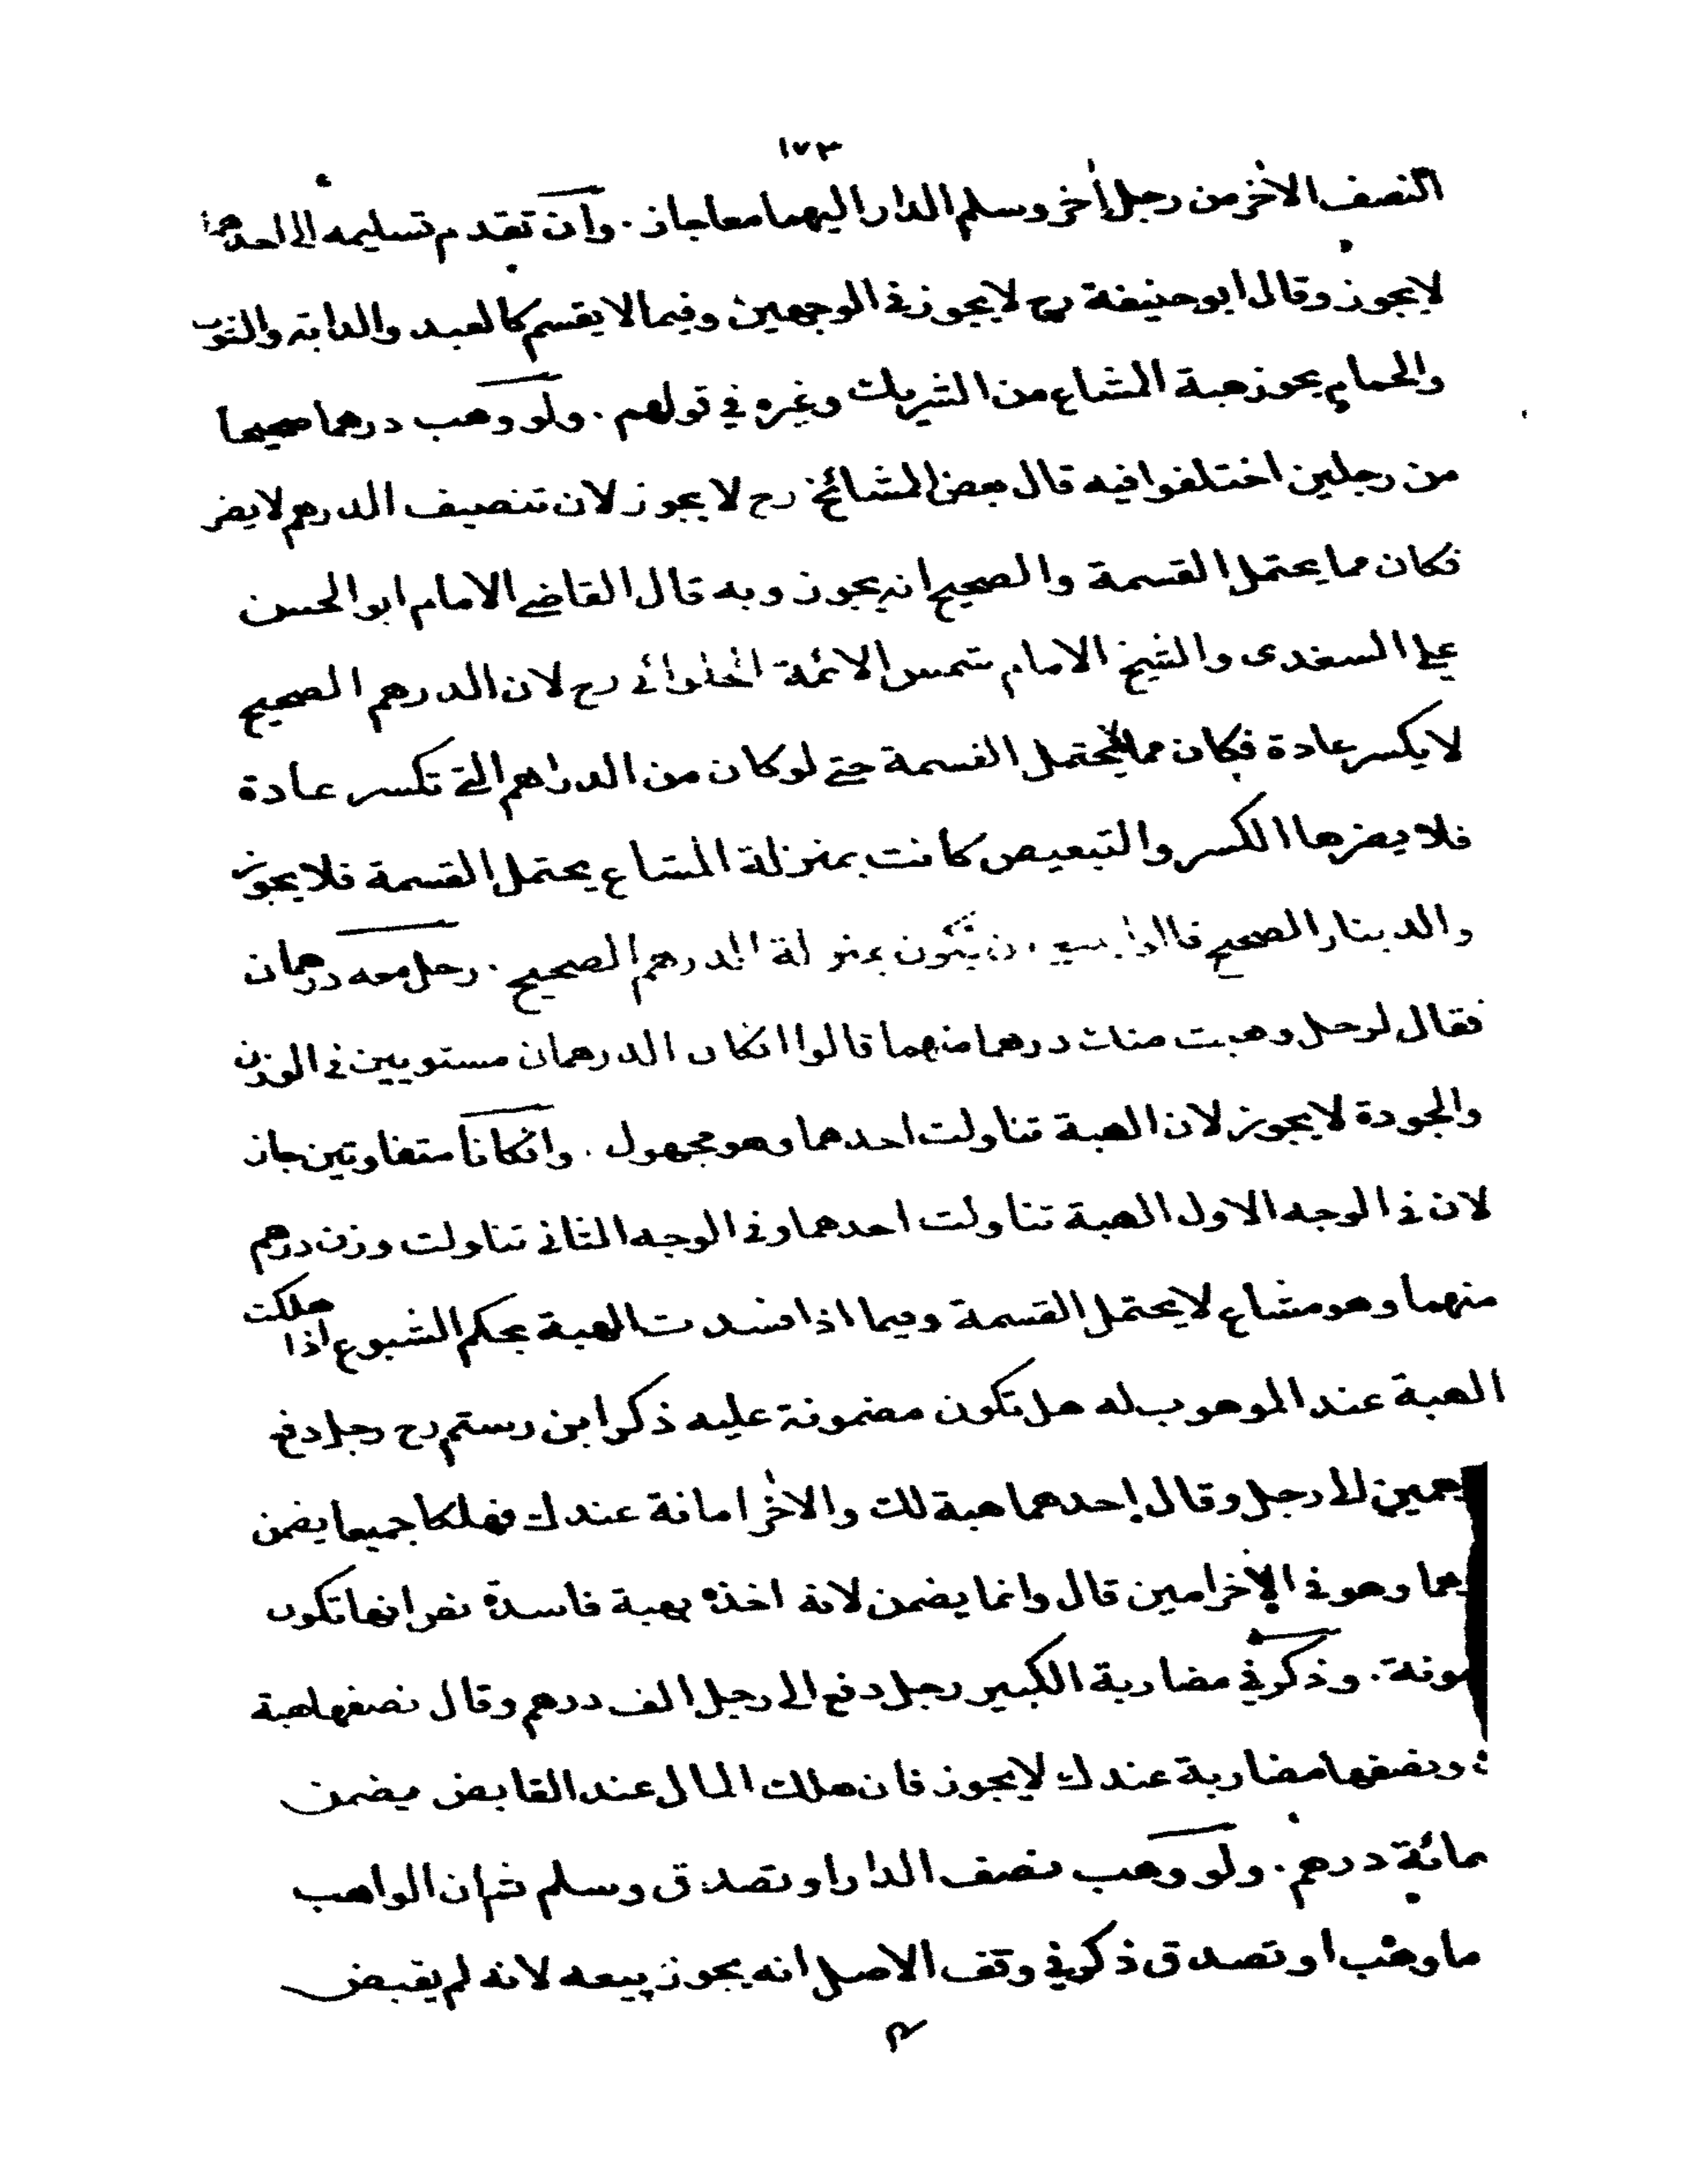 ١٧٣
النصف الاخر من رجل اخر وسلم الدار اليهما معا جاز. وان تقدم تسليمه الى احدهما
لا يجوز وقال ابو حنيفة رح لا يجوز في الوجهين وفيما لا يقسم كالعبد والدابة والثوب
والحمام يجوز هبة المشاع من الشريك وغيره في قولهم. ولو وهب درهما صحيحا
من رجلين اختلفوا فيه قال بعض المشائخ رح لا يجوز لان تنصيف الدرهم لا يضر
فكان مما يحتمل القسمة والصحيح انه يجوز وبه قال القاضي الامام ابو الحسن
علي السغدى والشيخ الامام شمس الائمة الحلوائي رح لان الدرهم الصحيح
لا يكسر عادة فكان مما لا يحتمل القسمة حتى لو كان من الدراهم التي تكسر عادة
فلا يضرها الكسر والتبعيض كانت بمنزلة المشاع يحتمل القسمة فلا يجوز
والدينار الصحيح قالوا ينبغي ان تكون بمنزلة الدرهم الصحيح. رجل معه درهمان
فقال لرجل وهبت منك درهما منهما قالوا انكان الدرهمان مستويين في الوزن
والجودة لا يجوز لان الهبة تناولت احدهما وهو مجهول. وانكانا متفاوتين جاز
لان في الوجه الاول الهبة تناولت احدهما وفي الوجه الثاني تناولت وزن درهم
منهما وهو مشاع لا يحتمل القسمة وفيما اذا فسدت الهبة بحكم الشيوع اذا هلكت
الهبة عند الموهوب له هل تكون مضمونة عليه ذكر ابن رستم رح رجل دفع
رهمين الى رجل وقال احدهما هبة لك والاخر امانة عندك فهلكا جميعا يضمن
رهما وهو في الاخر امين قال وانما يضمن لانه اخذه بهبة فاسدة نص انها تكون
مونة. وذكر في مضاربة الكبير رجل دفع الى رجل الف درهم وقال نصفها هبة
ونصفها مضاربة عندك لا يجوز فان هلك المال عند القابض يضمن
مائة درهم. ولو وهب نصف الدار او تصدق وسلم ثم ان الواهب
ما وهب او تصدق ذكر في وقف الاصل انه يجوز بيعه لانه لم يقبض